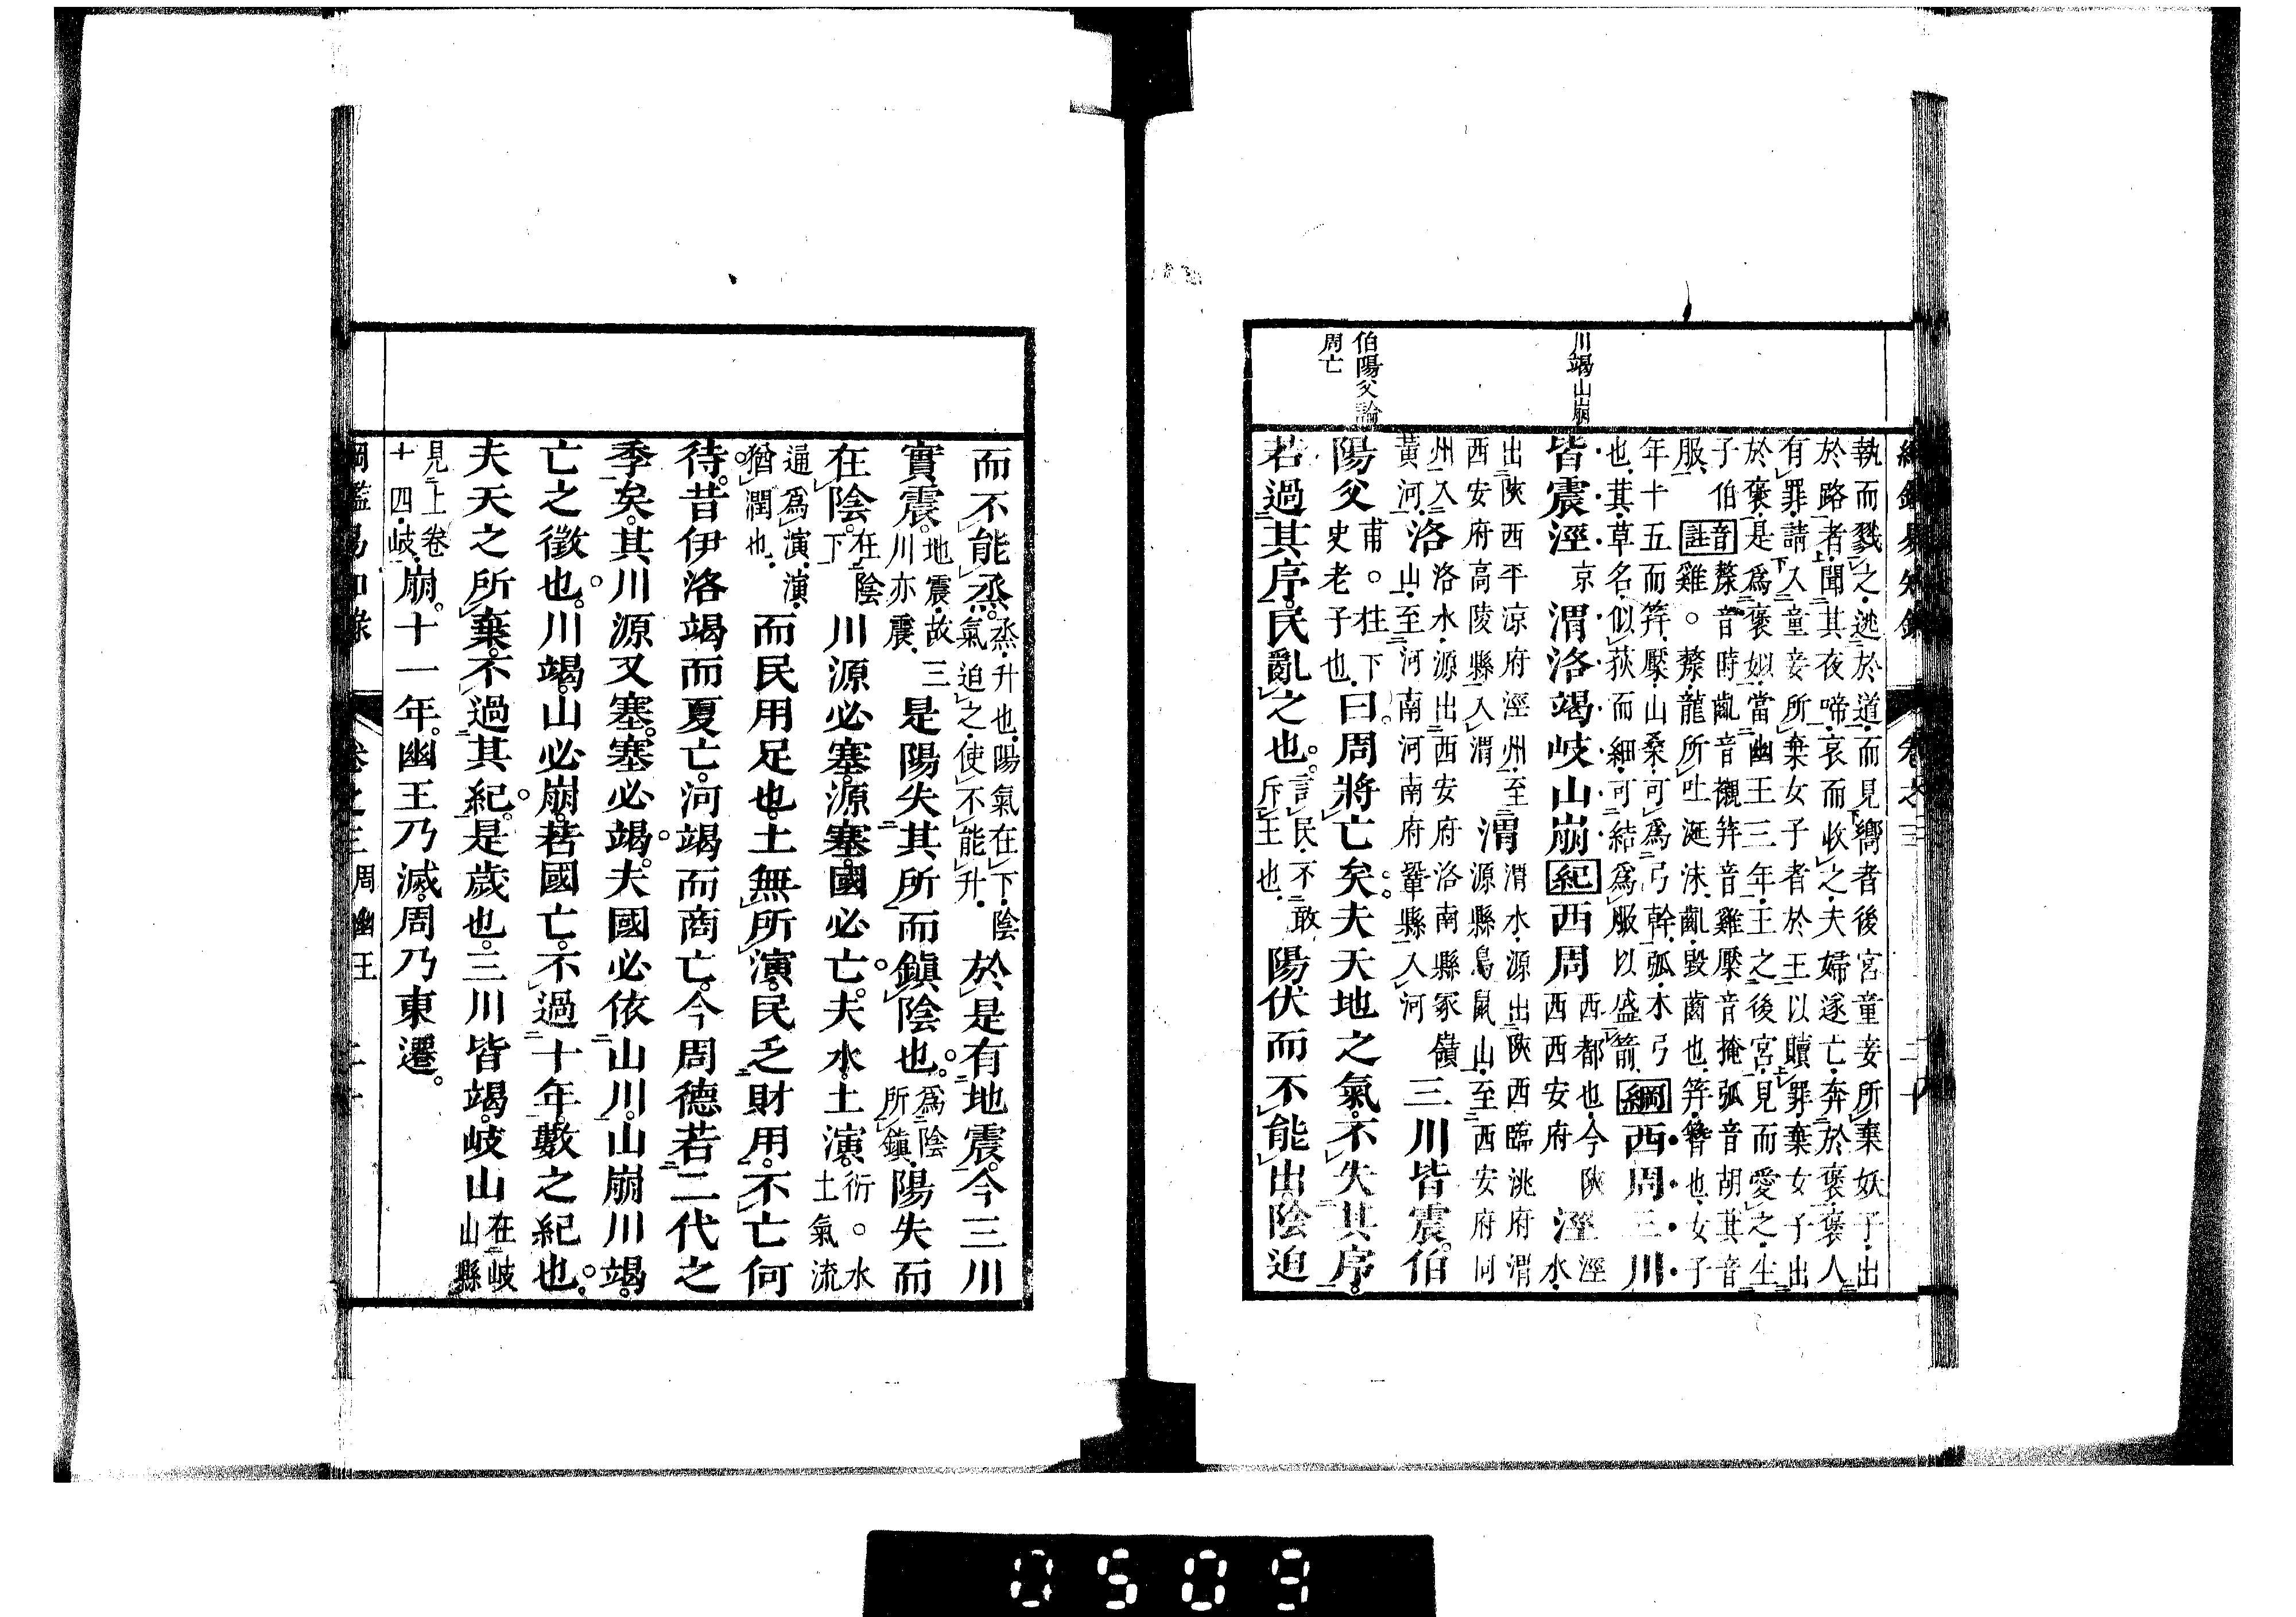 綱鑑易知錄 卷之三
執而戮之逃於道而見嚮者後宮童妾所棄妖子出
於路者聞其夜啼哀而收之夫婦遂亡奔於褒褒人
有罪請入童妾所棄女子者於王以贖罪棄女子出
於褒是爲褒姒當幽王三年王之後宮見而愛之生
子伯
服
音漦音時齓音襯笄音雞檿音掩弧音胡萁音
註雞。漦龍所吐涎沫齓毀齒也笄簪也女子
年十五而笄檿山桑可爲弓幹弧木弓
也萁草名似荻而細可結爲服以盛箭
綱西周三川
皆震涇京渭洛竭岐山崩紀西周西都也今陝
西西安府涇涇
水
出陝西平凉府涇州至
西安府高陵縣入渭
渭渭水源出陝西臨洮府渭
源縣鳥鼠山至西安府同
州入
黃河
洛洛水源出西安府洛南縣冢嶺
山至河南河南府鞏縣入河
三川皆震伯
陽父甫。柱下
史老子也
曰周將亡矣夫天地之氣不失其序
若過其序民亂之也言民不敢
斥王也
陽伏而不能出陰迫
川竭山崩
伯陽父論
周亡
而不能烝烝升也陽氣在下陰
氣迫之使不能升
於是有地震今三川
實震地震故三
川亦震
是陽失其所而鎭陰也爲陰
所鎭
陽失而
在陰在陰
下
川源必塞源塞國必亡夫水土演衍。水
土氣流
通爲演演
猶潤也
而民用足也土無所演民乏財用不亡何
待昔伊洛竭而夏亡河竭而商亡今周德若二代之
季矣其川源又塞塞必竭夫國必依山川山崩川竭
亡之徵也川竭山必崩若國亡不過十年數之紀也
夫天之所棄不過其紀是歲也三川皆竭岐山在岐
山縣
見上卷
十四岐
崩十一年幽王乃滅周乃東遷
綱鑑易知錄 卷之三 周幽王
0509